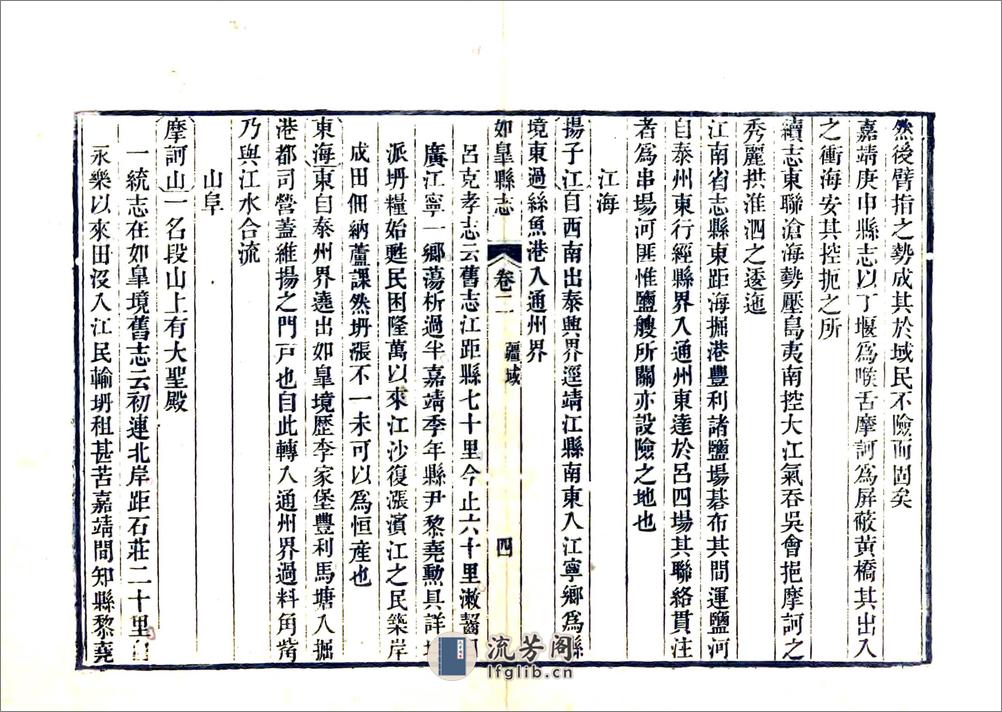 然後臂指之勢成其於域民不險而固矣
嘉靖庚申縣志以丁堰爲喉舌摩訶爲屏蔽黃橋其出入
之衝海安其控扼之所
續志東聯滄海勢壓島夷南控大江氣吞吳會挹摩訶之
秀麗拱淮泗之逶迤
江南省志縣東距海掘港豐利諸鹽場碁布其間運鹽河
自泰州東行經縣界入通州東達於呂四場其聯絡貫注
者爲串場河匪惟鹽艘所關亦設險之地也
江海
揚子江自西南出泰興界逕靖江縣南東入江寧鄉爲縣
境東過絲魚港入通州界
如皐縣志
卷二
疆域
四
呂克孝志云舊志江距縣七十里今止六十里潄齧
廣江寧一鄉蕩析過半嘉靖季年縣尹黎堯勳具詳
派坍糧始甦民困隆萬以來江沙復漲濱江之民築岸
成田佃納蘆課然坍漲不一未可以爲恒産也
東海東自泰州界遶出如皐境歷李家堡豐利馬塘入掘
港都司營蓋維揚之門戸也自此轉入通州界過料角觜
乃與江水合流
山阜
摩訶山一名段山上有大聖殿
一統志在如皐境舊志云初連北岸距石莊二十里
永樂以來田沒入江民輸坍租甚苦嘉靖間知縣黎堯
流芳阁
lfglib.cn